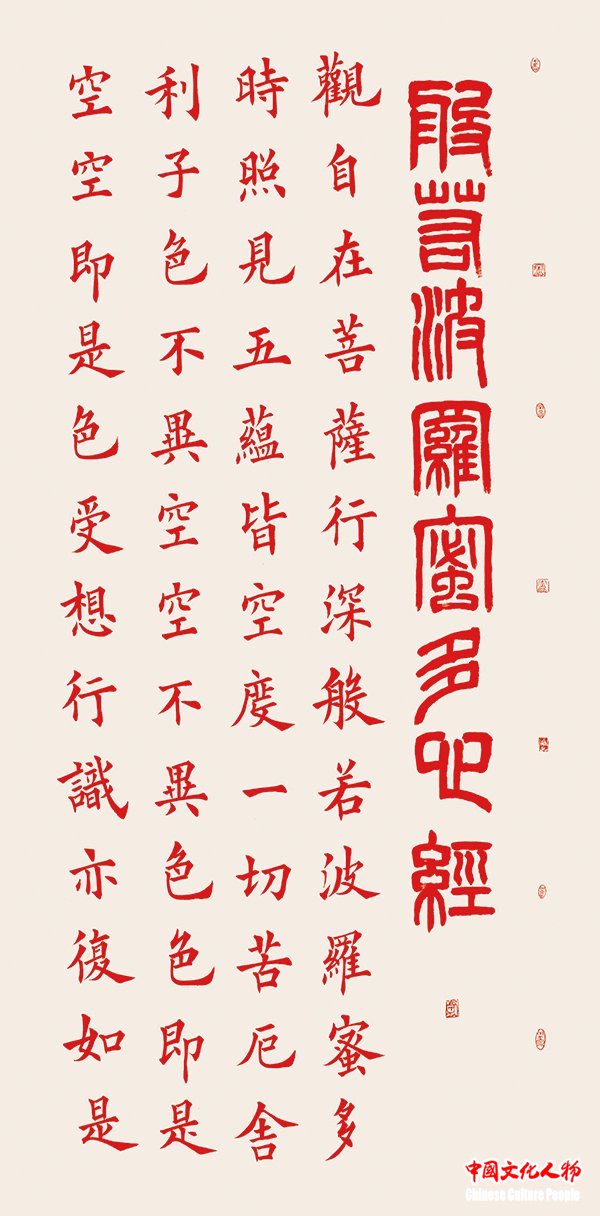 般若波羅蜜多心經
觀自在菩薩行深般若波羅蜜多
時照見五蘊皆空度一切苦厄舍
利子色不異空空不異色色即是
空空即是色受想行識亦復如是
中國文化人物
Chinese Culture People